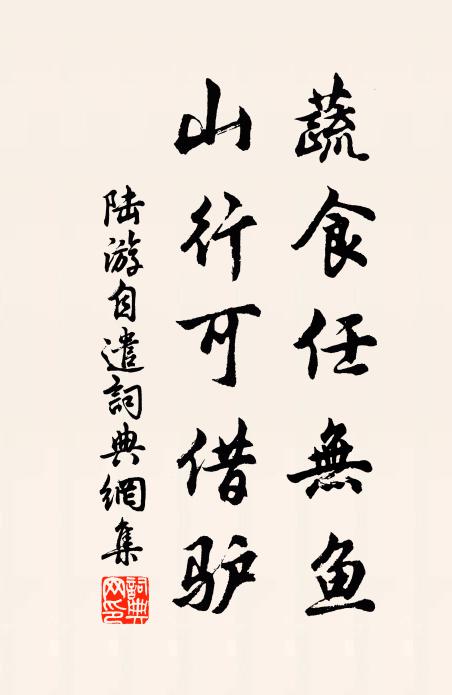 蔬食任無鱼
山行可借驴
陆游自遣詞典網集
詞典网印